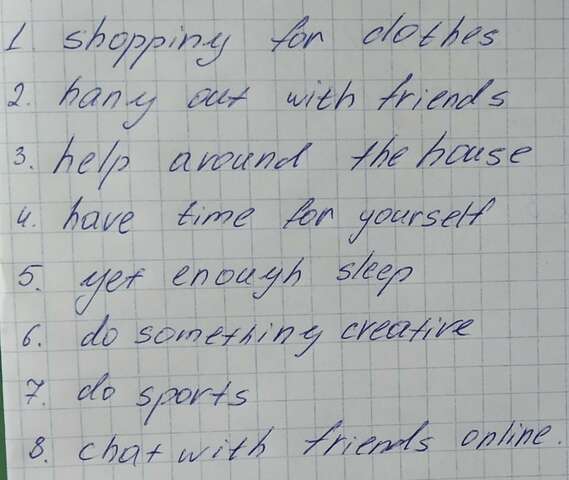 1 shopping for clothes
2. hang out with friends
3. help around the house
4. have time for yourself
5. get enough sleep
6. do something creative
7. do sports
8. chat with friends online.